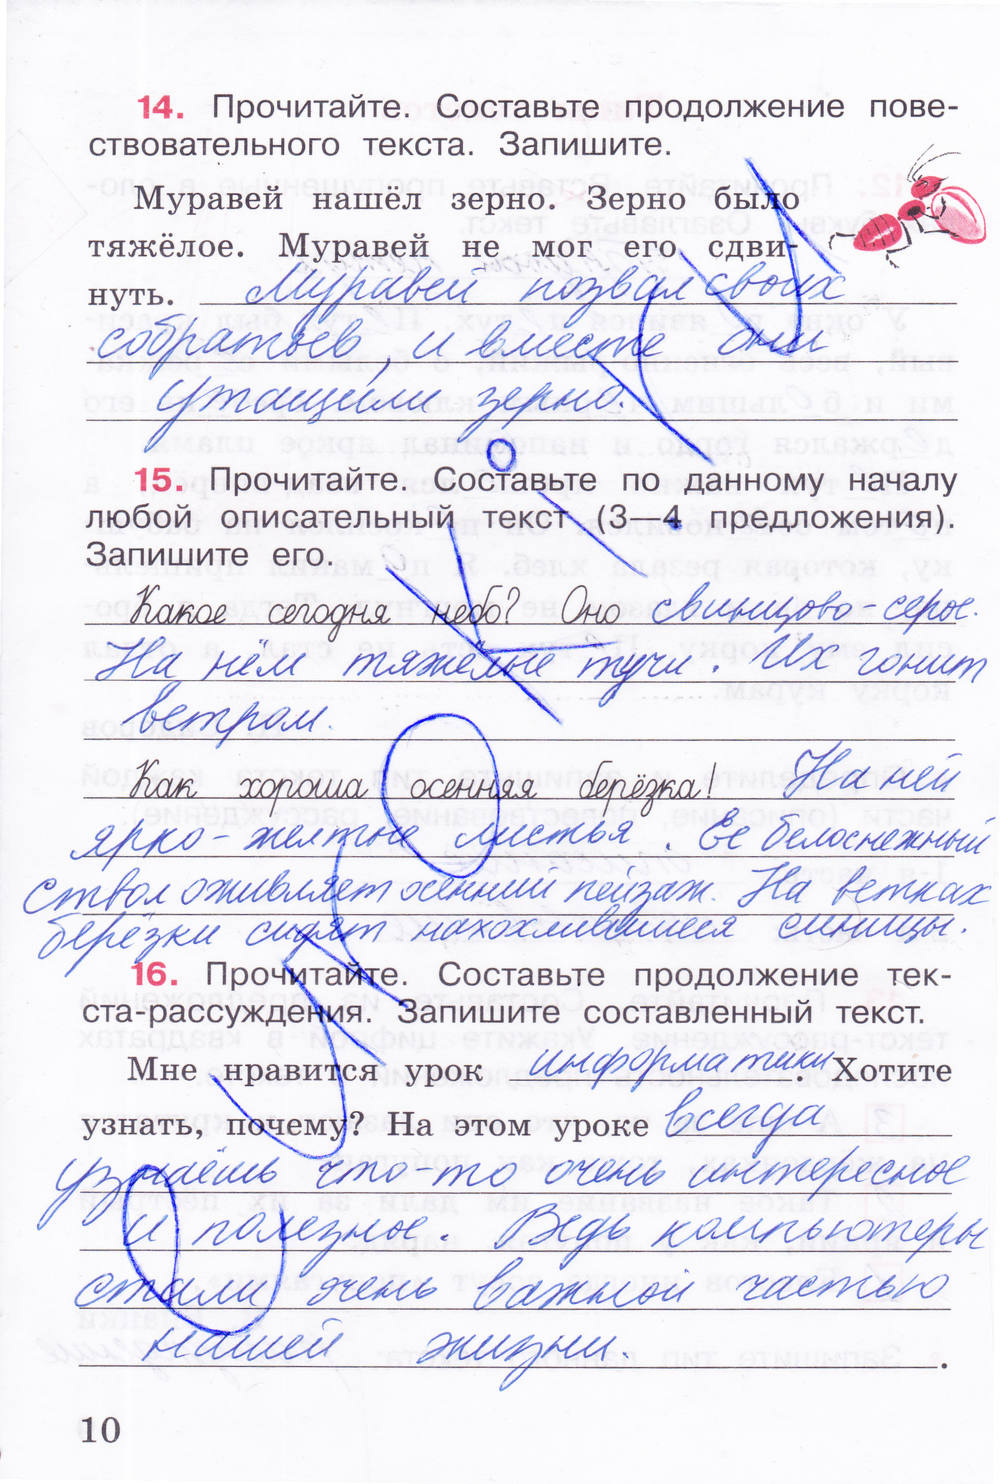 14. Прочитайте. Составьте продолжение пове-
ствовательного текста. Запишите.
Муравей нашёл зерно. Зерно было
тяжёлое. Муравей не мог его сдви-
нуть. Муравей позвал своих
собратьев и вместе они
утащили зерно.
15. Прочитайте. Составьте по данному началу
любой описательный текст (3—4 предложения).
Запишите его.
Какое сегодня небо? Оно свинцово серое.
На нём тяжёлые тучи. Их гонит
ветром.
Как хороша осенняя берёзка! На ней
ярко-желтые листья. Её белоснежный
ствол оживляет осенний пейзаж. На ветках
берёзки сидят нахохлившиеся синицы.
16. Прочитайте. Составьте продолжение тек-
ста-рассуждения. Запишите составленный текст.
Мне нравится урок информатики. Хотите
узнать, почему? На этом уроке всегда
узнаёшь что-то очень интересное
и полезное. Ведь компьютеры
стали очень важной частью
нашей жизни.
10